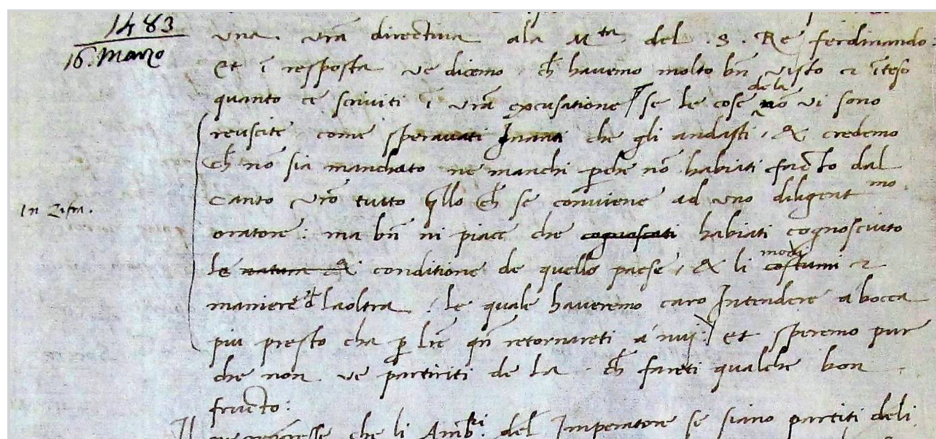 1483
16. Marzo
una vrã directiva ala Mta del .S. Re ferdinando:
et ĩ resposta ve dicemo ch̃ havemo molto bñ visto et ĩteso
quanto ce scriviti ĩ vrã excusatione se le cose dela nõ vi sono
reuscite come speravati Inanti che gli andasti, & credemo
ch̃ nõ sia manchato ne manchi perche nõ habiati facto dal
canto vrõ tutto qllo ch̃ se conviene ad uno diligentmo
In Zifra.
oratore: ma bñ ni piace che cognoscati habiati cognosciuto
le natura & conditione de quello paese, & li costumi modi et
maniere d laoltra, le quale haveremo caro Intendere a bocca
piu presto cha p lrẽ qñ retornareti a nuj: et speremo pur
che non ve partiriti de la ch̃ fareti qualche bon
fructo:
che li Ambri del Imperatore se siano partiti deli